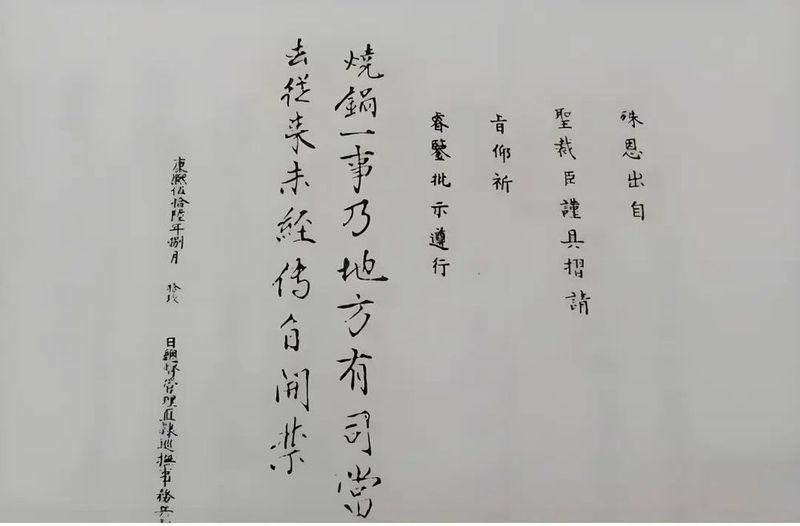 殊恩出自
聖裁臣謹具摺請
旨仰祈
睿鑒批示遵行
燒鍋一事乃地方有司當
去從来未經傳旨開禁
康熙伍拾陸年捌月 拾玖
日總督管理直隸巡撫事務兵